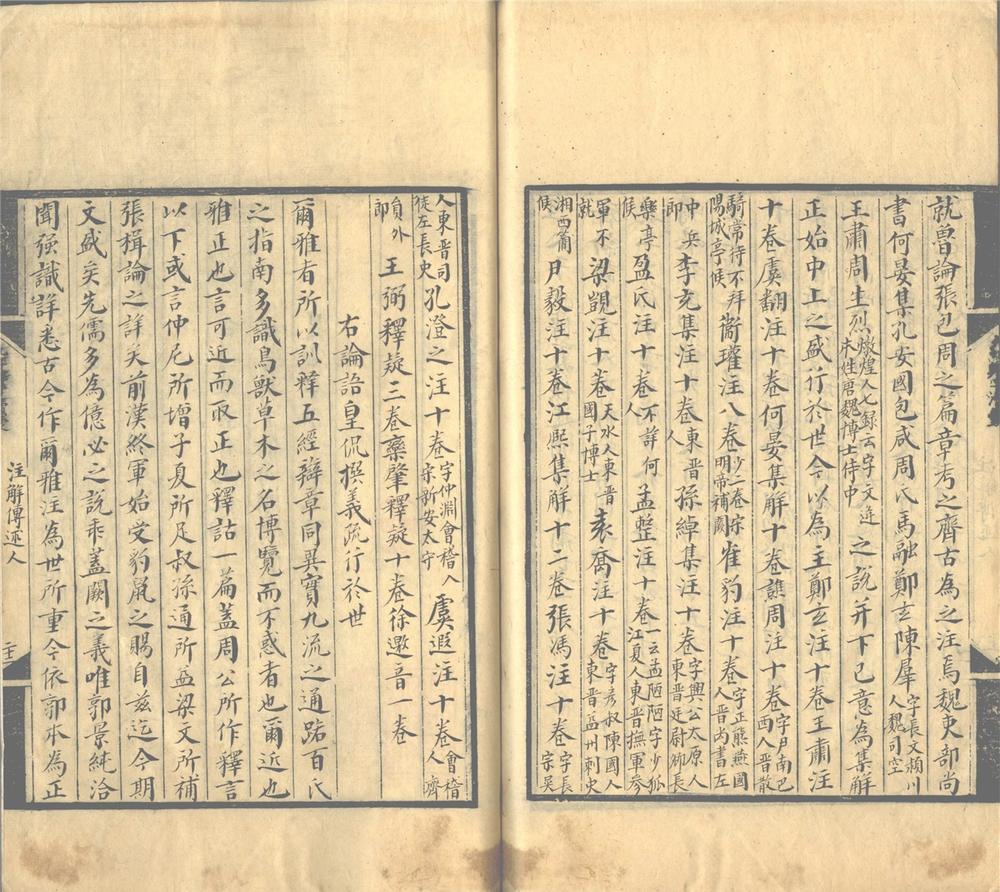 就魯論張包周之篇章考之齊古為之注焉魏吏部尚
書何晏集孔安國包咸周氏馬融鄭玄陳羣字長文潁川人魏司空
王肅周生烈燉煌人七錄云字文逸本姓唐魏博士侍中之說并下己意為集解
正始中上之盛行於世今以為主鄭玄注十卷王肅注
十卷虞翻注十卷何晏集解十卷譙周注十卷字允南巴西人晋散
騎常待不拜陽城亭候衛瓘注八卷少二卷宋明帝補闕崔豹注十卷字正熊燕國人晋尚書左
中兵郎李充集注十卷東晋人孫綽集注十卷字興公太原人東晋廷尉卿長
樂亭候盈氏注十卷不詳何人孟整注十卷一云孟陋陋字少孤江夏人東晋撫軍參
軍不就梁覬注十卷天水人東晋國子博士袁喬注十卷字彥叔陳國人東晋益州刺史
湘西簡候尹毅注十卷江熙集解十二卷張馮注十卷字長宗吳
人東晋司徒左長史孔澄之注十卷字仲淵會稽人宋新安太守虞遐注十卷會稽人齊
員外郎王弼釋疑三卷欒肇釋疑十卷徐邈音一卷
右論語皇侃撰義疏行於世
爾雅者所以訓釋五經辯章同異實九流之通路百氏
之指南多識鳥獸草木之名博覽而不惑者也爾近也
雅正也言可近而取正也釋詁一篇蓋周公所作釋言
以下或言仲尼所增子夏所足叔孫通所益梁文所補
張楫論之詳矣前漢終軍始受豹鼠之賜自兹迄今期
文盛矣先儒多為億必之說乖蓋闕之義唯郭景純洽
聞强識詳悉古今作爾雅注為世所重今依郭本為正
注解傳述人
二十二